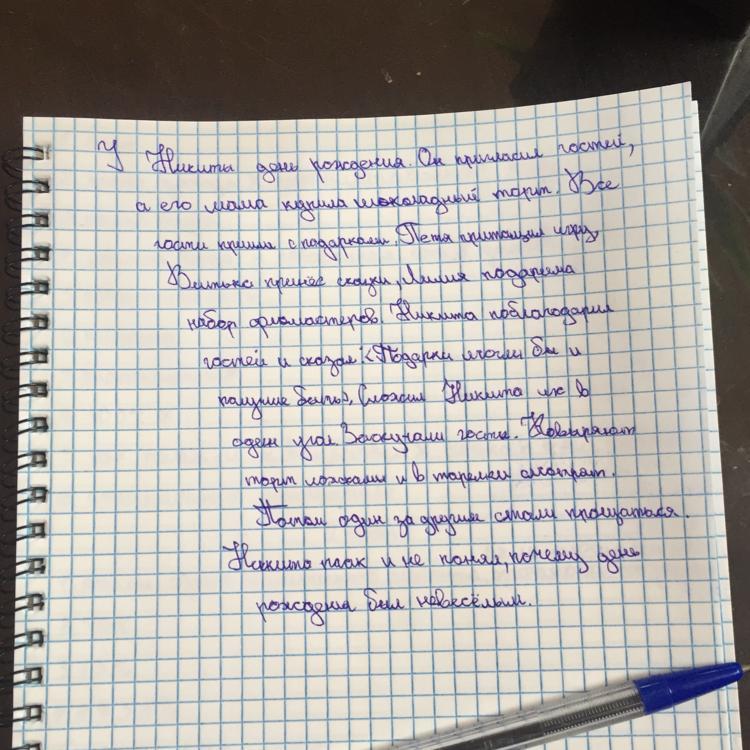 У Никиты день рождения. Он пригласил гостей,
а его мама купила шоколадный торт. Все
гости пришли с подарками. Петя притащил игру,
Витька принёс сказки, Лилия подарила
набор фломастеров. Никита поблагодарил
гостей и сказал: <Подарки могли бы и
получше быть>. Сложил Никита их в
один угол. Заскучали гости. Ковыряют
торт ложками и в тарелки смотрят.
Потом один за другим стали прощаться.
Никита так и не понял, почему день
рождения был невесёлым.